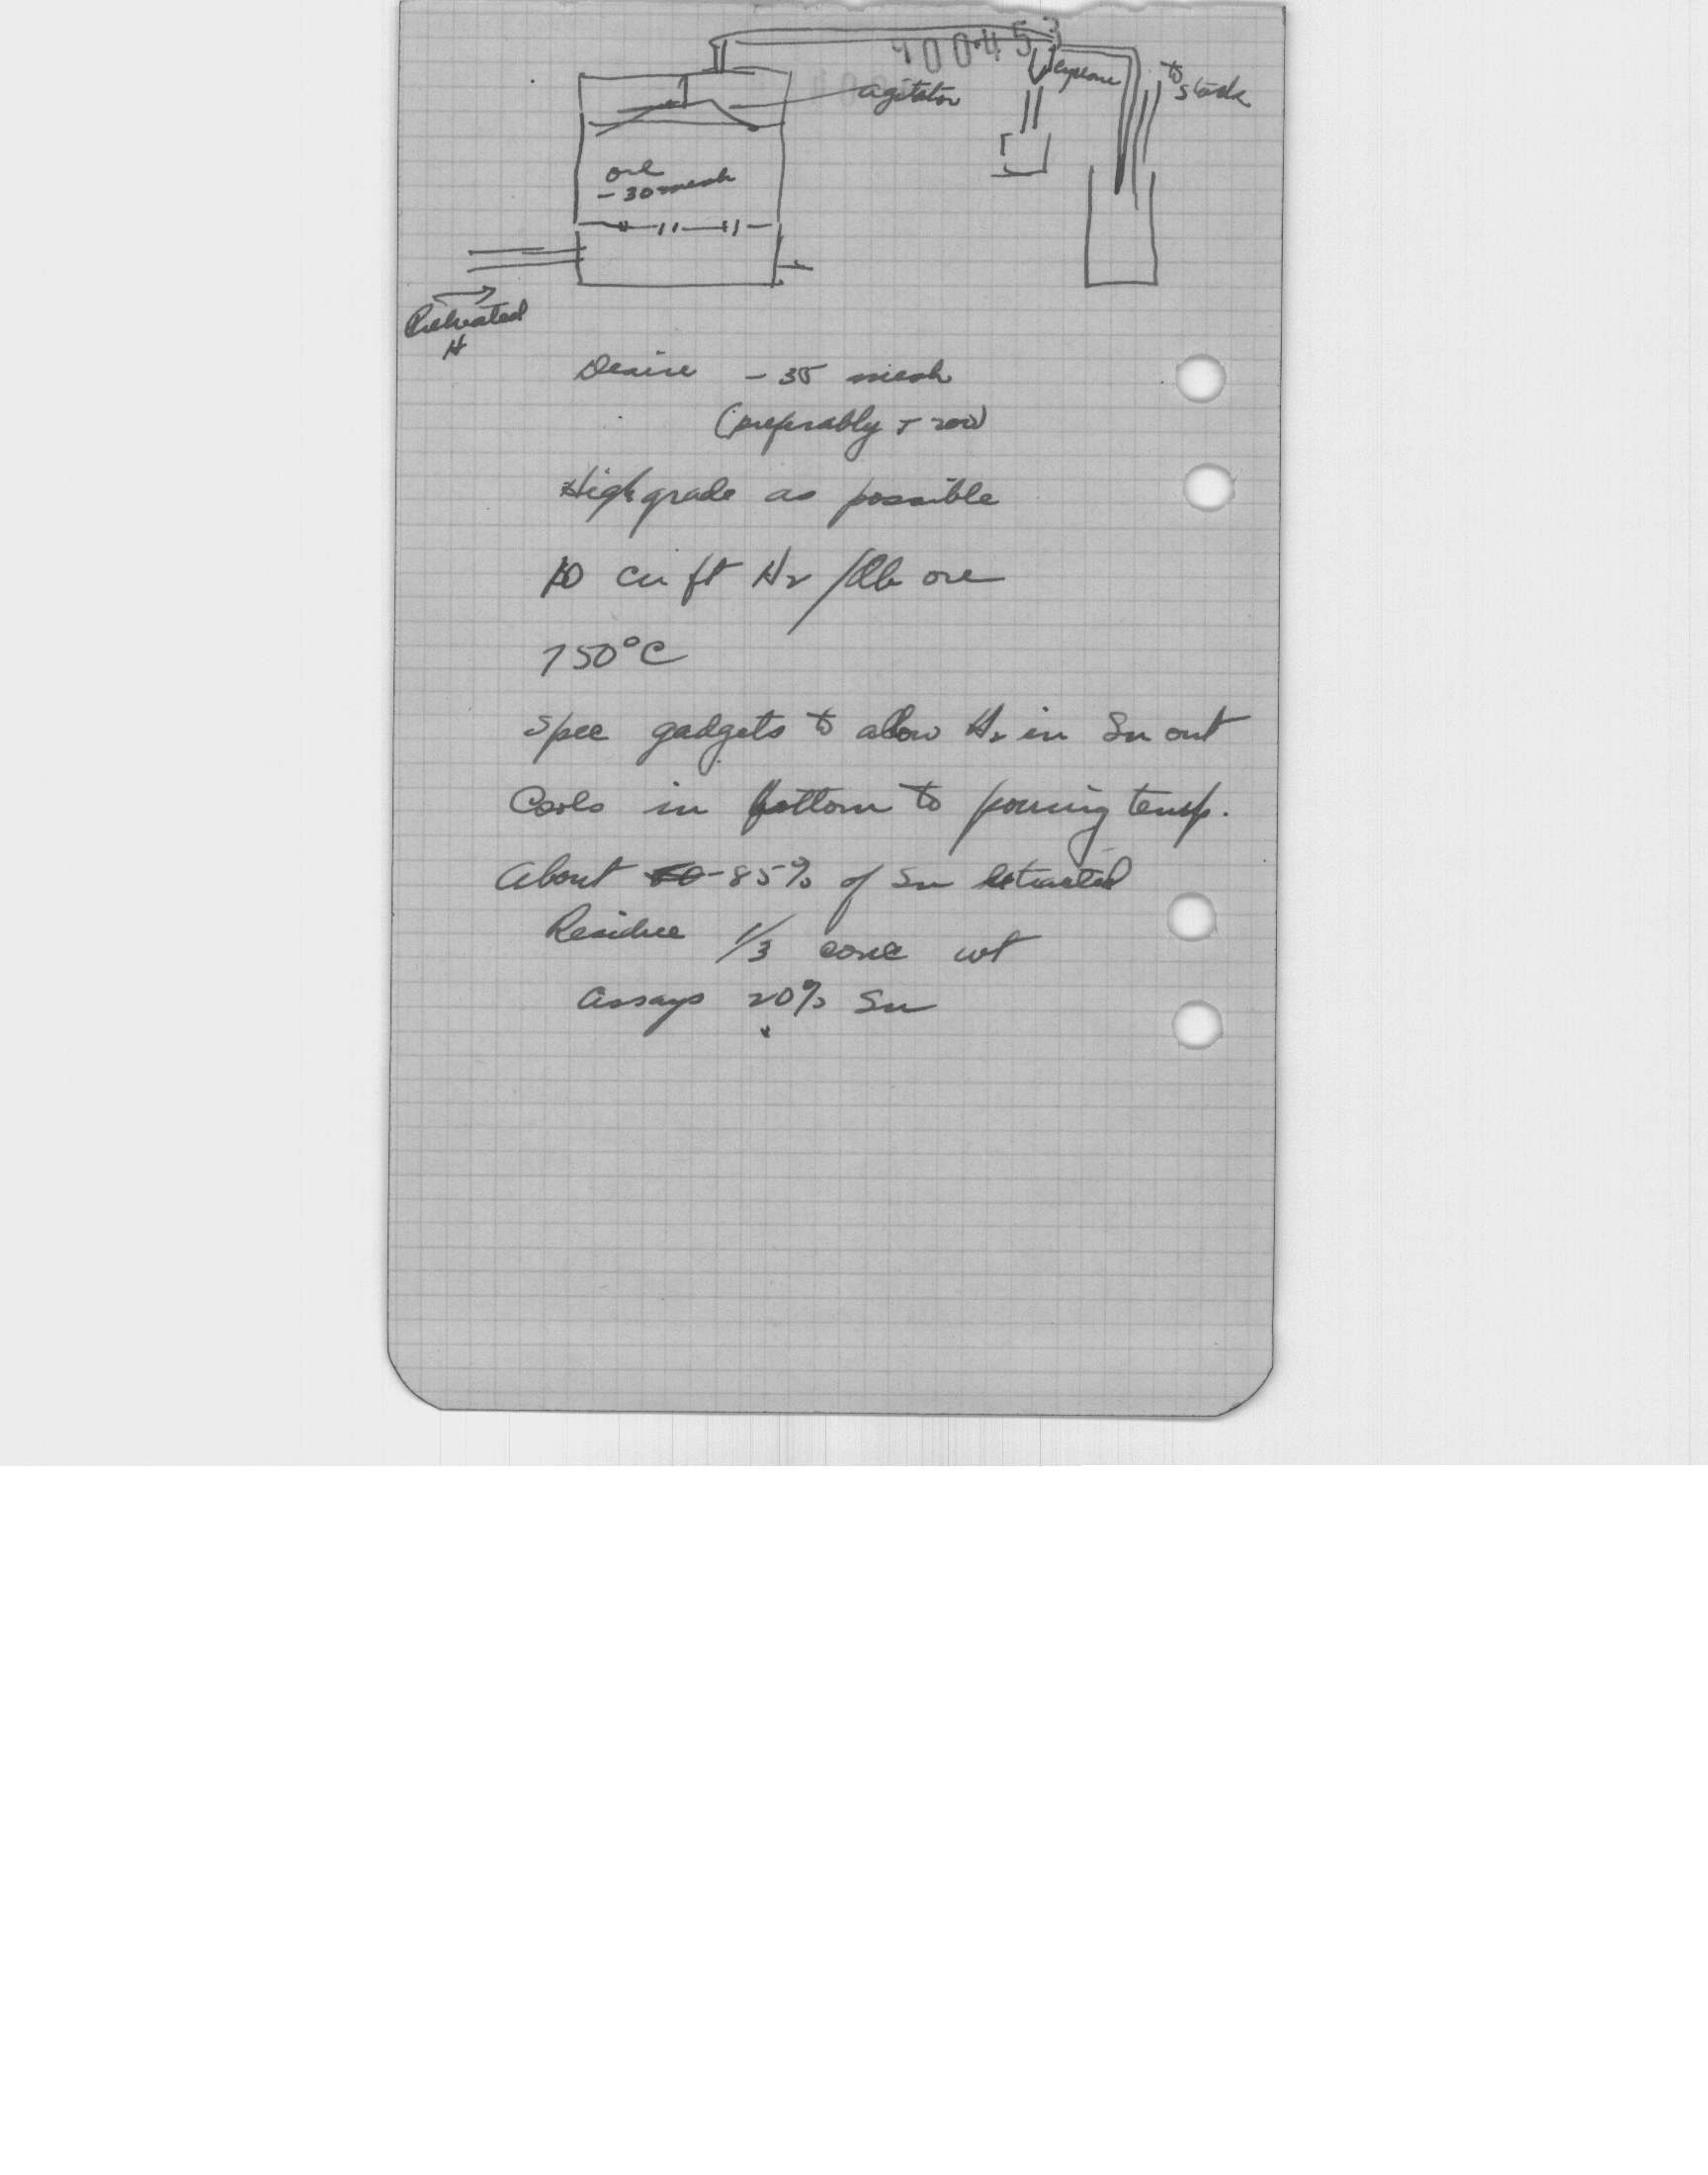 400453
cyclone
to
stack
agitator
ore
- 30 mesh
Preheated
H
Desire - 35 mesh
(preferably + 200)
High grade as possible
10 cu ft H2 / lb ore
750°C
Spec gadgets to allow H2 in Sn out
Cools in bottom to pouring temp.
About 60-85% of Sn extracted
Residue 1/3 conc wt
Assays 20% Sn